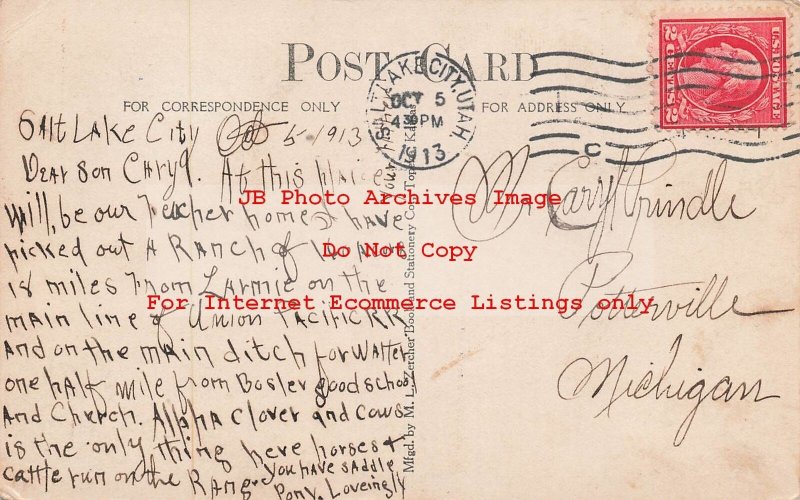 POST CARD
FOR CORRESPONDENCE ONLY
FOR ADDRESS ONLY
U.S. POSTAGE
2 CENTS 2
SALT LAKE CITY, UTAH.
OCT 5
430PM
1913
C
Salt Lake City Oct 5 1913
Dear Son Cary. At this place
will, be our home I have
picked out A RANCH of Land
18 miles From Larmie on the
main line of Union Pacific RR
And on the main ditch for Watter
one half mile from Bosler good school
And Church. Alpha Clover and Cows
is the only thing here horses &
cattle run on the Range
you have saddle
Pony. Loveingly
your
Mfgd. by M. L. Zercher Book and Stationery Co., Topeka, Kansas
Mr Cary Prindle
Potterville
Michigan
JB Photo Archives Image
Do Not Copy
For Internet Ecommerce Listings only